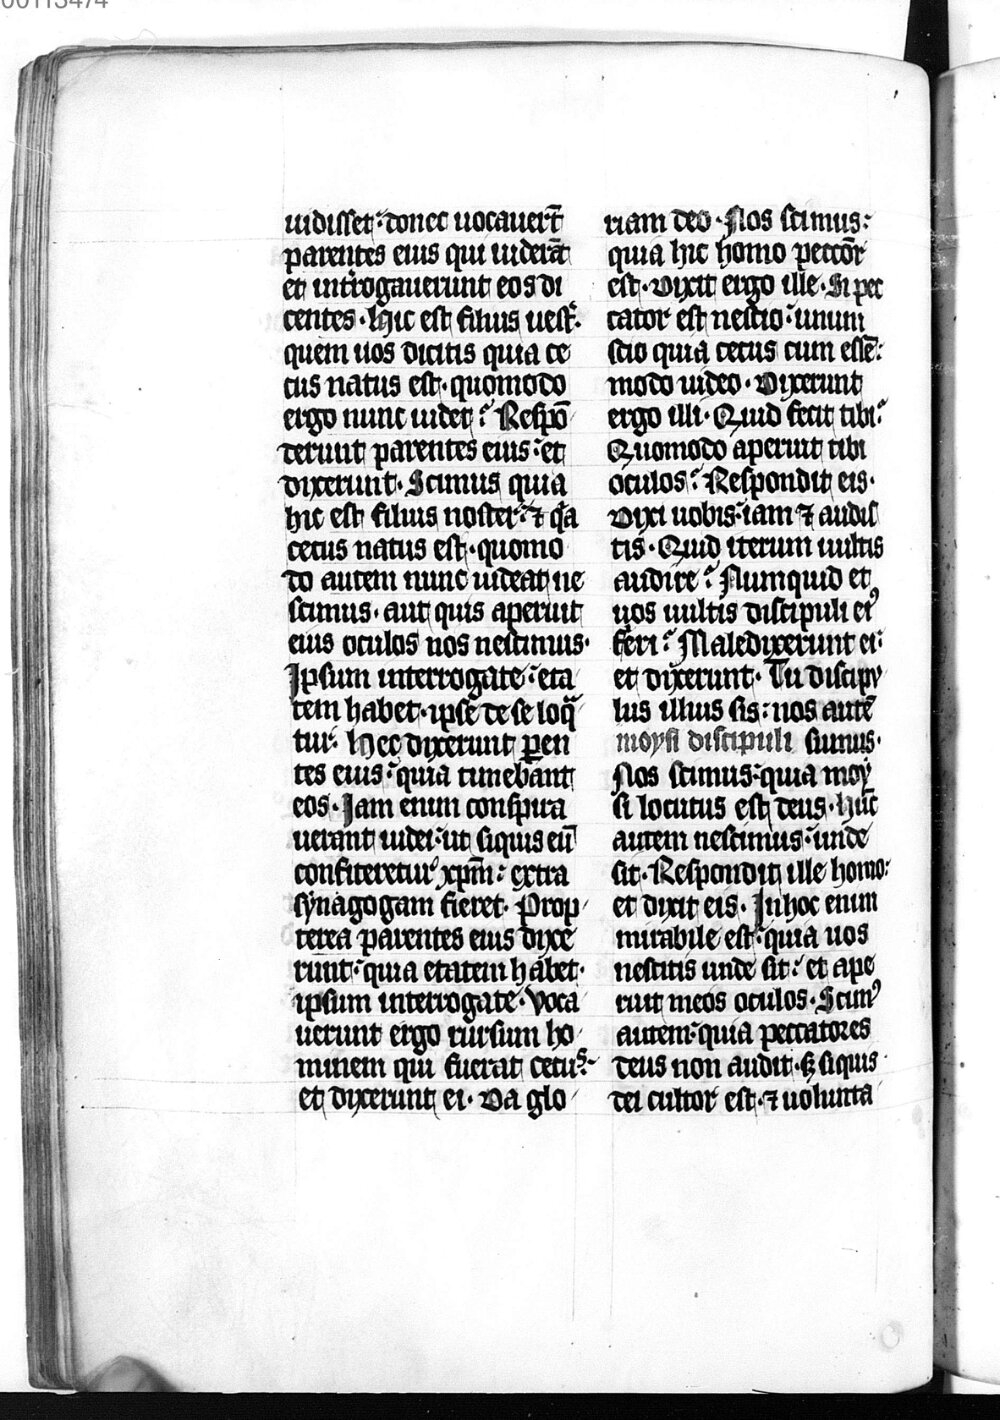 00113474
uidisset: donec uocauert̅
parentes eius qui uidera̅t
et int̉rogauerunt eos di
centes. Hic est filius uest̉.
quem uos dicitis quia ce
cus natus est. quomodo
ergo nunc uidet? Respo̅
derunt parentes eius: et
dixerunt. Scimus quia
hic est filius noster: ⁊ qa
cecus natus est. quomo
do autem nunc uideat ne
scimus. aut quis aperuit
eius oculos nos nescimus.
Ipsum interrogate: eta
tem habet. ipse de se loq
tur. Hec dixerunt ꝑen
tes eius: quia timebant
eos. Jam enim conspira
uerant iudei: ut siquis eu̅
confiteretur xpm̅: extra
synagogam fieret. Prop
terea parentes eius dixe
runt: quia etatem habet.
ipsum interrogate. Voca
uerunt ergo rursum ho
minem qui fuerat cecus:
et dixerunt ei. Da glo
riam deo. Nos scimus:
quia hic homo pecco̅r
est. Dixit ergo ille. Si pec
cator est nescio: unum
scio quia cecus cum esse̅:
modo uideo. Dixerunt
ergo illi. Quid fecit tibi?
Quomodo aperuit tibi
oculos? Respondit eis.
Dixi uobis: iam ⁊ audis
tis. Quid iterum uultis
audire? Numquid et
uos uultis discipuli eiꝰ
fieri? Maledixerunt ei:
et dixerunt. Tu discipu
lus illius sis: nos aute̅
moysi discipuli sumus.
Nos scimus: quia moy
si locutus est deus. Hu̅c
autem nescimus: unde
sit. Respondit ille homo:
et dixit eis. In hoc enim
mirabile est: quia uos
nescitis unde sit: et ape
ruit meos oculos. Scimꝰ
autem: quia peccatores
deus non audit. sꝫ siquis
dei cultor est. ⁊ uolunta